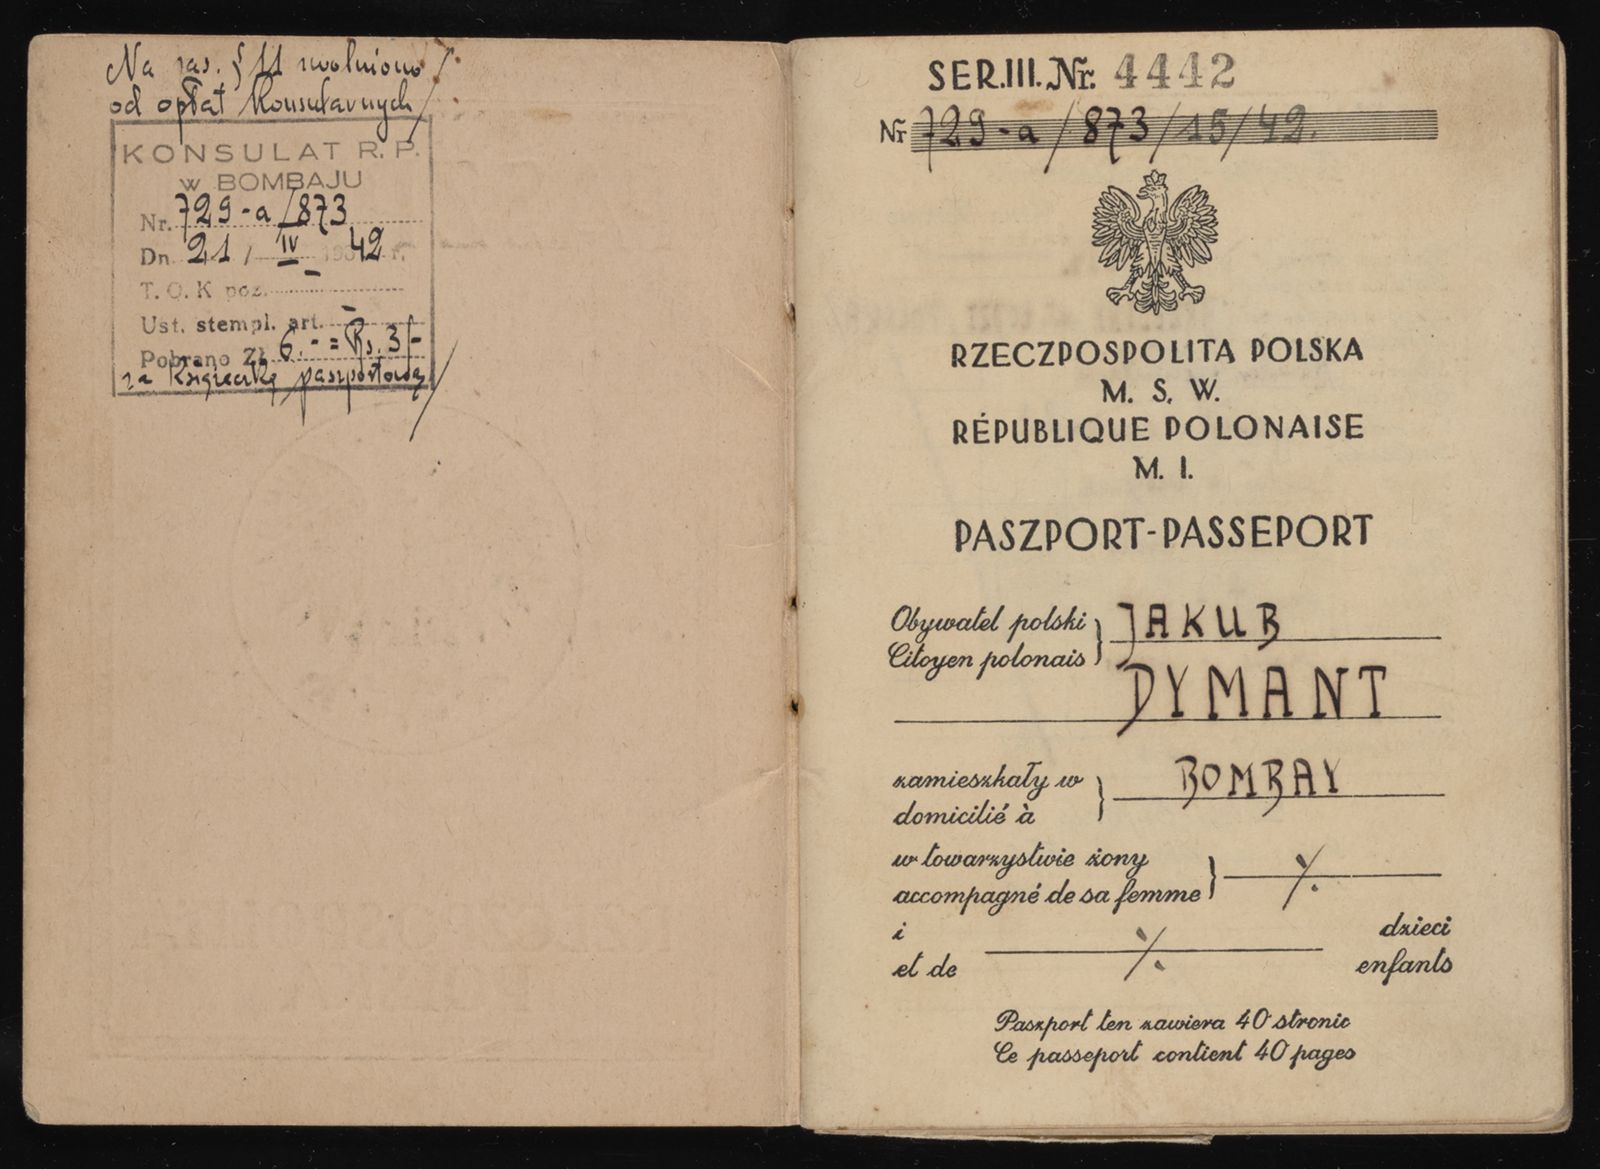 Na zas. § 11 zwolniono
od opłat Konsularnych
KONSULAT R. P.
w BOMBAJU
Nr. 729-a/873
Dn. 21/IV 42 r.
T. O. K poz.
Ust. stempl. art. -
Pobrano Zł 6.- = Rs. 3/-
za Książeczkę paszportową
SER.III. Nr. 4442
Nr 729-a/873/15/42.
RZECZPOSPOLITA POLSKA
M. S. W.
RÉPUBLIQUE POLONAISE
M. I.
PASZPORT-PASSEPORT
Obywatel polski
Citoyen polonais } JAKUB
DYMANT
zamieszkały w
domicilié à } BOMBAY
w towarzystwie żony
accompagné de sa femme } ./.
i dzieci
et de ./. enfants
Paszport ten zawiera 40 stronic
Ce passeport contient 40 pages